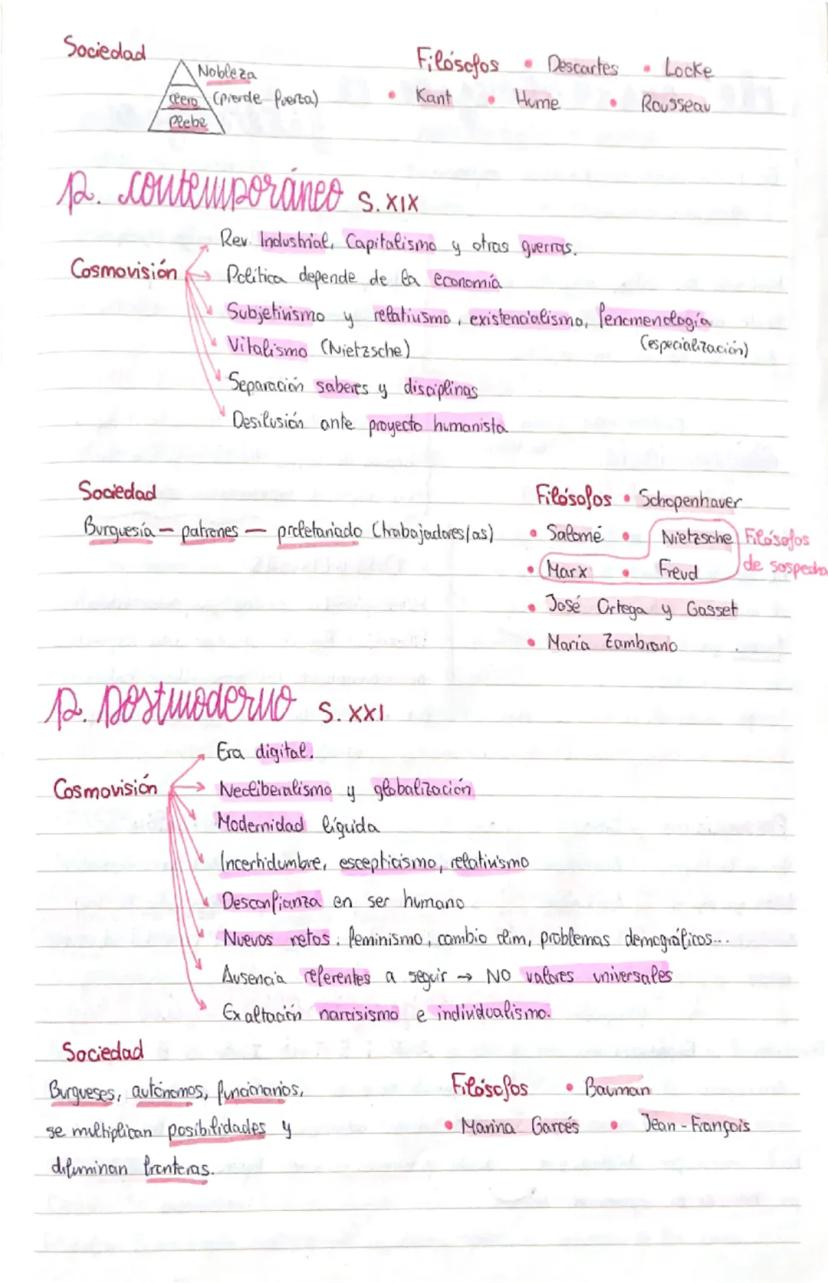 Sociedad
Nobleza
clero (pierde fuerza)
Plebe
Filósofos • Descartes • Locke
• Kant • Hume • Rousseau
P. contemporáneo S. XIX
Cosmovisión
Rev Industrial, Capitalismo y otras guerras.
Política depende de la economía
Subjetivismo y relativismo, existencialismo, fenomenología
(especialización)
Vitalismo (Nietzsche)
Separación saberes y disciplinas
Desilusión ante proyecto humanista
Sociedad
Burguesía — patrones — proletariado (trabajadores/as)
Filósofos • Schopenhaver
• Salomé • Nietzsche
• Marx • Freud
Filósofos
de sospecha
• José Ortega y Gasset
• María Zambrano
P. Postmoderno S. XXI
Cosmovisión
Era digital.
Neoliberalismo y globalización
Modernidad líquida
Incertidumbre, escepticismo, relativismo
Desconfianza en ser humano
Nuevos retos: feminismo, cambio clim, problemas demográficos...
Ausencia referentes a seguir → NO valores universales
Exaltación narcisismo e individualismo.
Sociedad
Burgueses, autónomos, funcionarios,
se multiplican posibilidades y
difuminan fronteras.
Filósofos • Bauman
• Marina Garcés • Jean-François